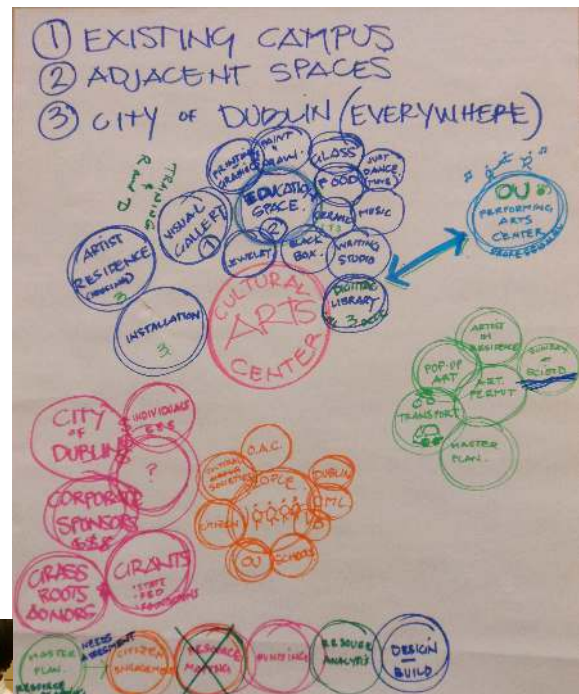 ① EXISTING CAMPUS
② ADJACENT SPACES
③ CITY OF DUBLIN (EVERYWHERE)
TRAINING
&
R AND D
PRINTING
GRAPHIC
PAINT
&
DRAW.
GLASS
JUST
DANCE
MOVE
EDUCATION
SPACE.
2
FOOD
CERAMIC
MUSIC
VISUAL
GALLERY
①
JEWELRY
BLACK
BOX.
WRITING
STUDIO
ARTIST
RESIDENCE
(HOUSING)
3
INSTALLATION
3
CULTURAL
ARTS
CENTER
DIGITAL
LIBRARY
3
OU
PERFORMING
ARTS
CENTER
PROFESSIONAL
ARTIST
IN
RESIDENCE
SUNDAY
AT
SCIOTO
POP-UP
ART
ART
PERMIT
TRANSPORT
MASTER
PLAN.
CITY
OF
DUBLIN
INDIVIDUALS
$ $ $
?
CORPORATE
SPONSORS
$ & $
GRASS
ROOTS
DONORS
GRANTS
• STATE
• FED
• FOUNDATIONS
O.A.C.
CULTURAL
SOCIETIES
PEOPLE
DUBLIN
CML
CITIZEN
OU
SCHOOLS
MASTER
PLAN.
RESOURCE
NEEDS
ASSESSMENT
CITIZEN
ENGAGEMENT
RESOURCE
MAPPING
FUNDING
RESOURCE
ANALYSIS
DESIGN
BUILD